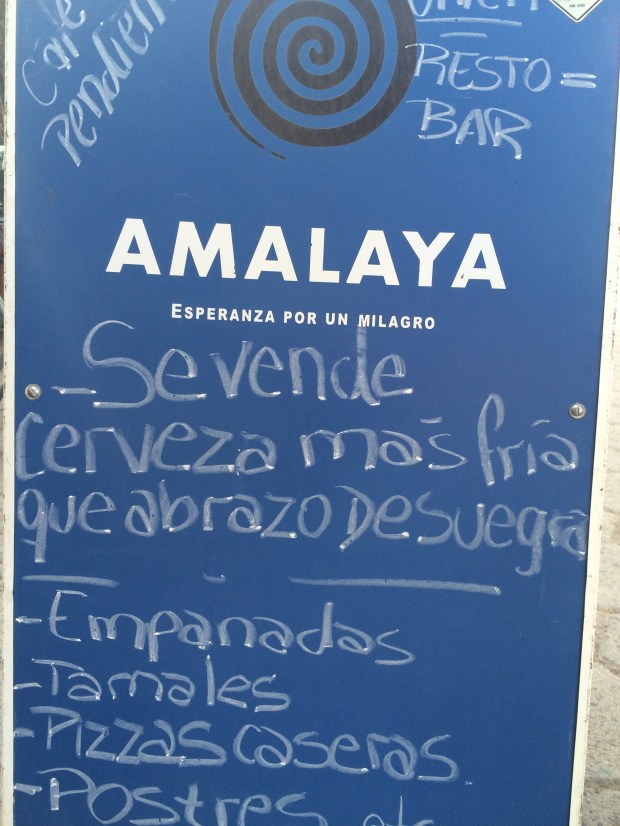 RESTO=
BAR
AMALAYA
ESPERANZA POR UN MILAGRO
-Se vende
cerveza más fría
que abrazo De suegra
-Empanadas
-Tamales
-Pizzas caseras
-Postres